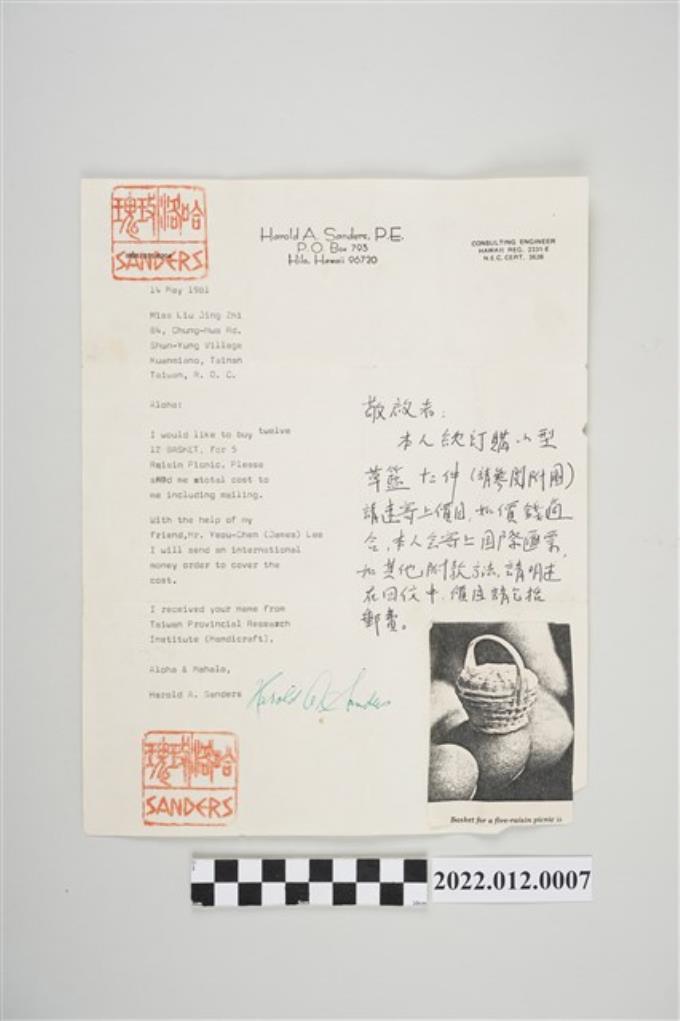 SANDERS
Harold A. Sanders, P.E.
P.O. Box 793
Hilo, Hawaii 96720
CONSULTING ENGINEER
HAWAII REG. 2331-E
N.E.C. CERT. 3638
14 May 1981
Miss Liu Jing Zhi
84, Chung-Hwa Rd.
Shun-Yung Village
Kuanmiano, Tainan
Taiwan, R. O. C.
Aloha:
I would like to buy twelve
12 BASKET, For 5
Raisin Picnic. Please
send me total cost to
me including mailing.
With the help of my
friend,Mr. Yeou-Chem (James) Lee
I will send an international
money order to cover the
cost.
I received your name from
Taiwan Provincial Research
Institute (Handicraft).
Aloha & Mahalo,
Harold A. Sanders
Harold A. Sanders
敬啟者：
本人欲訂購小型
草籃 十二件（請參閱附圖）
請速寄上價目，如價錢適
合，本人会寄上国際匯票，
如其他附款方法，請明述
在回信中，價位請包括
郵費。
SANDERS
Basket for a five-raisin picnic is
2022.012.0007